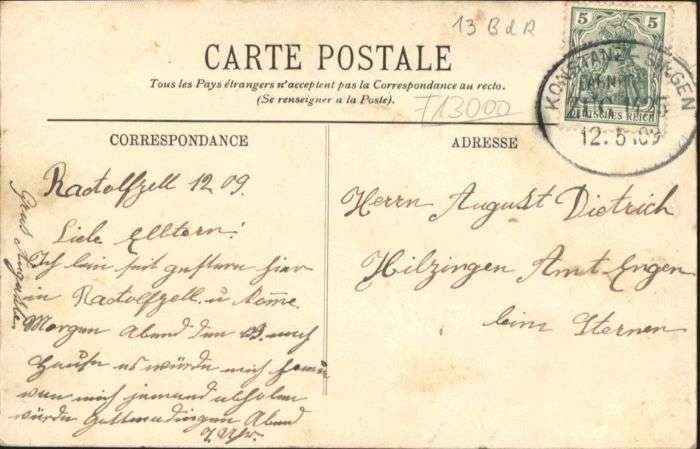 13 B d R
CARTE POSTALE
Tous les Pays étrangers n'acceptent pas la Correspondance au recto.
(Se renseigner a la Poste).
T13000
5 5
DEUTSCHES REICH
KONSTANZ - SINGEN
BAHNPOST
12. 5 09
CORRESPONDANCE
Radolfzell 12 09.
Liebe Elltern!
Ich bin seit gestern hier
in Radolfzell u. köme
Morgen Abend den 13. nach
Hause es würde mich freuen
wen mich jemand abholen
würde Gottmadingen Abend
7 Uhr.
Grus
ADRESSE
Herrn August Dietrich
Hilzingen Amt Engen
beim Sternen